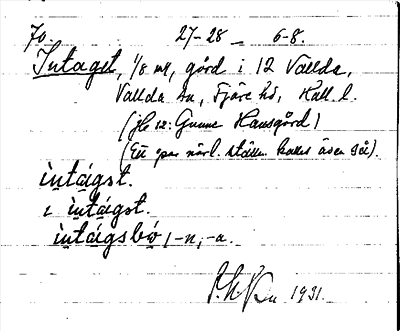 70. 27-28 — 6-8.
Intaget, 1/8 mt, gård i 12 Vallda,
Vallda sn, Fjäre hd, Hall. l.
(Jfr 12: Gunne Hansgård)
(Ett par närl. ställen kallas även så).
ìntágst.
i ìntágst.
ìntágsbo, -n, -a.
1931.